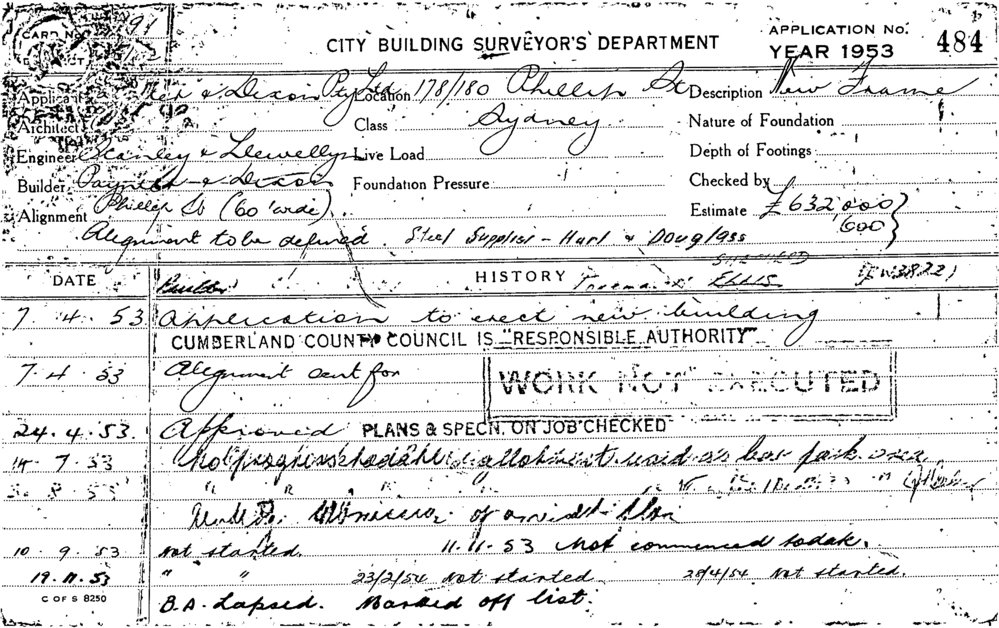 CARD No.
CITY BUILDING SURVEYOR'S DEPARTMENT
APPLICATION No.
YEAR 1953
484
Applicant & Dixon Pty Ltd Location 178/180 Phillip St Description New Frame
Architect Class Sydney Nature of Foundation
Engineer Stanley & Llewellyn Live Load Depth of Footings
Builder & Dixon Foundation Pressure Checked by
Alignment Phillip St (60' wide) Estimate £632,000
Alignment to be defined. Steel Supplist - Hurl & Douglass
DATE Builder HISTORY ELLIS
7 4 53 Application to erect new building
CUMBERLAND COUNTY COUNCIL IS "RESPONSIBLE AUTHORITY"
7. 4. 53 Alignment sent for
WORK NOT EXECUTED
24. 4. 53. Approved PLANS & SPECN. ON JOB CHECKED
7. 53 No progress to date allotment used as car park area
" " "
of plan
10. 9. 53 Not started. 11. 11. 53 Not commenced to date.
19. 11. 53 " " 23/2/54 Not started. 28/4/54 Not started.
C OF S 8250
B.A. Lapsed. Marked off list.